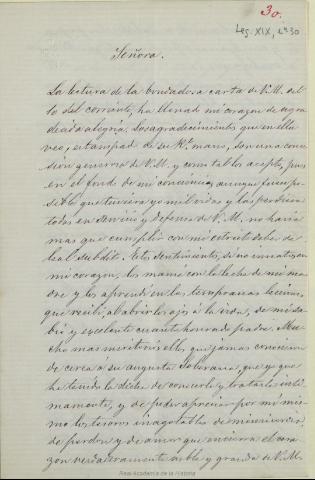 30.
Leg. XIX, nº 30
Señora.
La lectura de la bondadosa carta de V.M. del
10 del corriente, ha llenado mi corazon de agra
decida alegria; los agradecimientos que en ella
veo, estampados de su Rl. mano, son una conce
sion generosa de V.M. y como tal los acepto, pues
en el fondo de mi conciencia, aunque fuera po
sible que tuviera yo mil vidas y las perdiera
todas en servicio y defensa de V.M., no haria
mas que cumplir con mi estricto deber de
leal subdito. Estos sentimientos, si no innatos en
mi corazon, los mamé con la leche de mi ma
dre y los aprendí en las tempranas leccio
que recibí, al abrir los ojos á la vida, de mi sa
bio y excelente cuanto honrado padre. Mu
cho mas meritorio ellos, que jamas conocieron
de cerca á su augusta Soberana, que yo que
he tenido la dicha de conocerla y tratarla inti
mamente, y de poder apreciar por mi mis
mo los tesoros inagotables de misericordia,
de perdon y de amor que encierra el cora
zon verdaderamente noble y grande de V.M.
Real Academia de la Historia